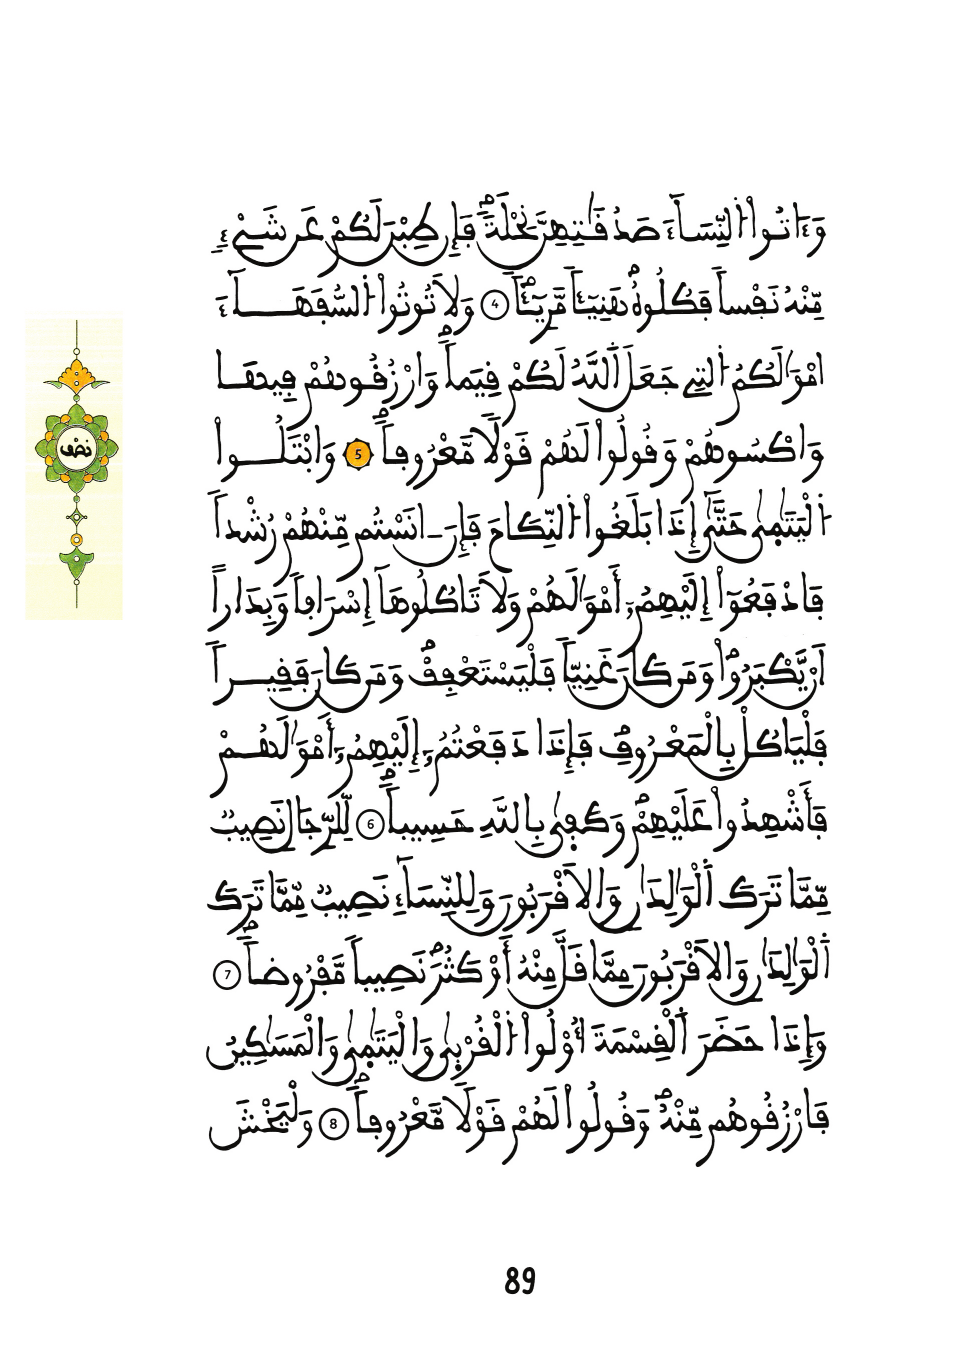 وَءَاتُوا۟ اُ۬لنِّسَآءَ صَدُقَٰتِهِنَّ نِحْلَةٗۖ فَإِن طِبْنَ لَكُمْ عَن شَےْءٖ
مِّنْهُ نَفْساٗ فَكُلُوهُ هَنِيٓـٔاٗ مَّرِيٓـٔاٗۖ 4 وَلَا تُوتُوا۟ اُ۬لسُّفَهَآءَ
امْوَٰلَكُمُ اُ۬لتِے جَعَلَ اَ۬للَّهُ لَكُمْ قِيَماٗۖ وَارْزُقُوهُمْ فِيهَا
وَاكْسُوهُمْ وَقُولُوا۟ لَهُمْ قَوْلاٗ مَّعْرُوفاٗۖ 5 وَابْتَلُوا۟
اُ۬لْيَتَٰمَىٰ حَتَّىٰٓ إِذَا بَلَغُوا۟ اُ۬لنِّكَاحَ فَإِنَ ـ انَسْتُم مِّنْهُمْ رُشْداٗ
فَادْفَعُوٓا۟ إِلَيْهِمُۥٓ أَمْوَٰلَهُمْ وَلَا تَاكُلُوهَآ إِسْرَافاٗ وَبِدَاراً
اَنْ يَّكْبَرُوا۟ۖ وَمَن كَانَ غَنِيّاٗ فَلْيَسْتَعْفِفْۖ وَمَن كَانَ فَقِيراٗ
فَلْيَاكُلْ بِالْمَعْرُوفِۖ فَإِذَا دَفَعْتُمُۥٓ إِلَيْهِمُۥٓ أَمْوَٰلَهُمْ
فَأَشْهِدُوا۟ عَلَيْهِمْۖ وَكَفَىٰ بِاللَّهِ حَسِيباٗۖ 6 لِّلرِّجَالِ نَصِيبٞ
مِّمَّا تَرَكَ اَ۬لْوَٰلِدَٰنِ وَالَاقْرَبُونَ وَلِلنِّسَآءِ نَصِيبٞ مِّمَّا تَرَكَ
اَ۬لْوَٰلِدَٰنِ وَالَاقْرَبُونَ مِمَّا قَلَّ مِنْهُ أَوْ كَثُرَۖ نَصِيباٗ مَّفْرُوضاٗۖ 7
وَإِذَا حَضَرَ اَ۬لْقِسْمَةَ أُوْلُوا۟ اُ۬لْقُرْبَىٰ وَالْيَتَٰمَىٰ وَالْمَسَٰكِينُ
فَارْزُقُوهُم مِّنْهُۖ وَقُولُوا۟ لَهُمْ قَوْلاٗ مَّعْرُوفاٗۖ 8 وَلْيَخْشَ
نصف
89